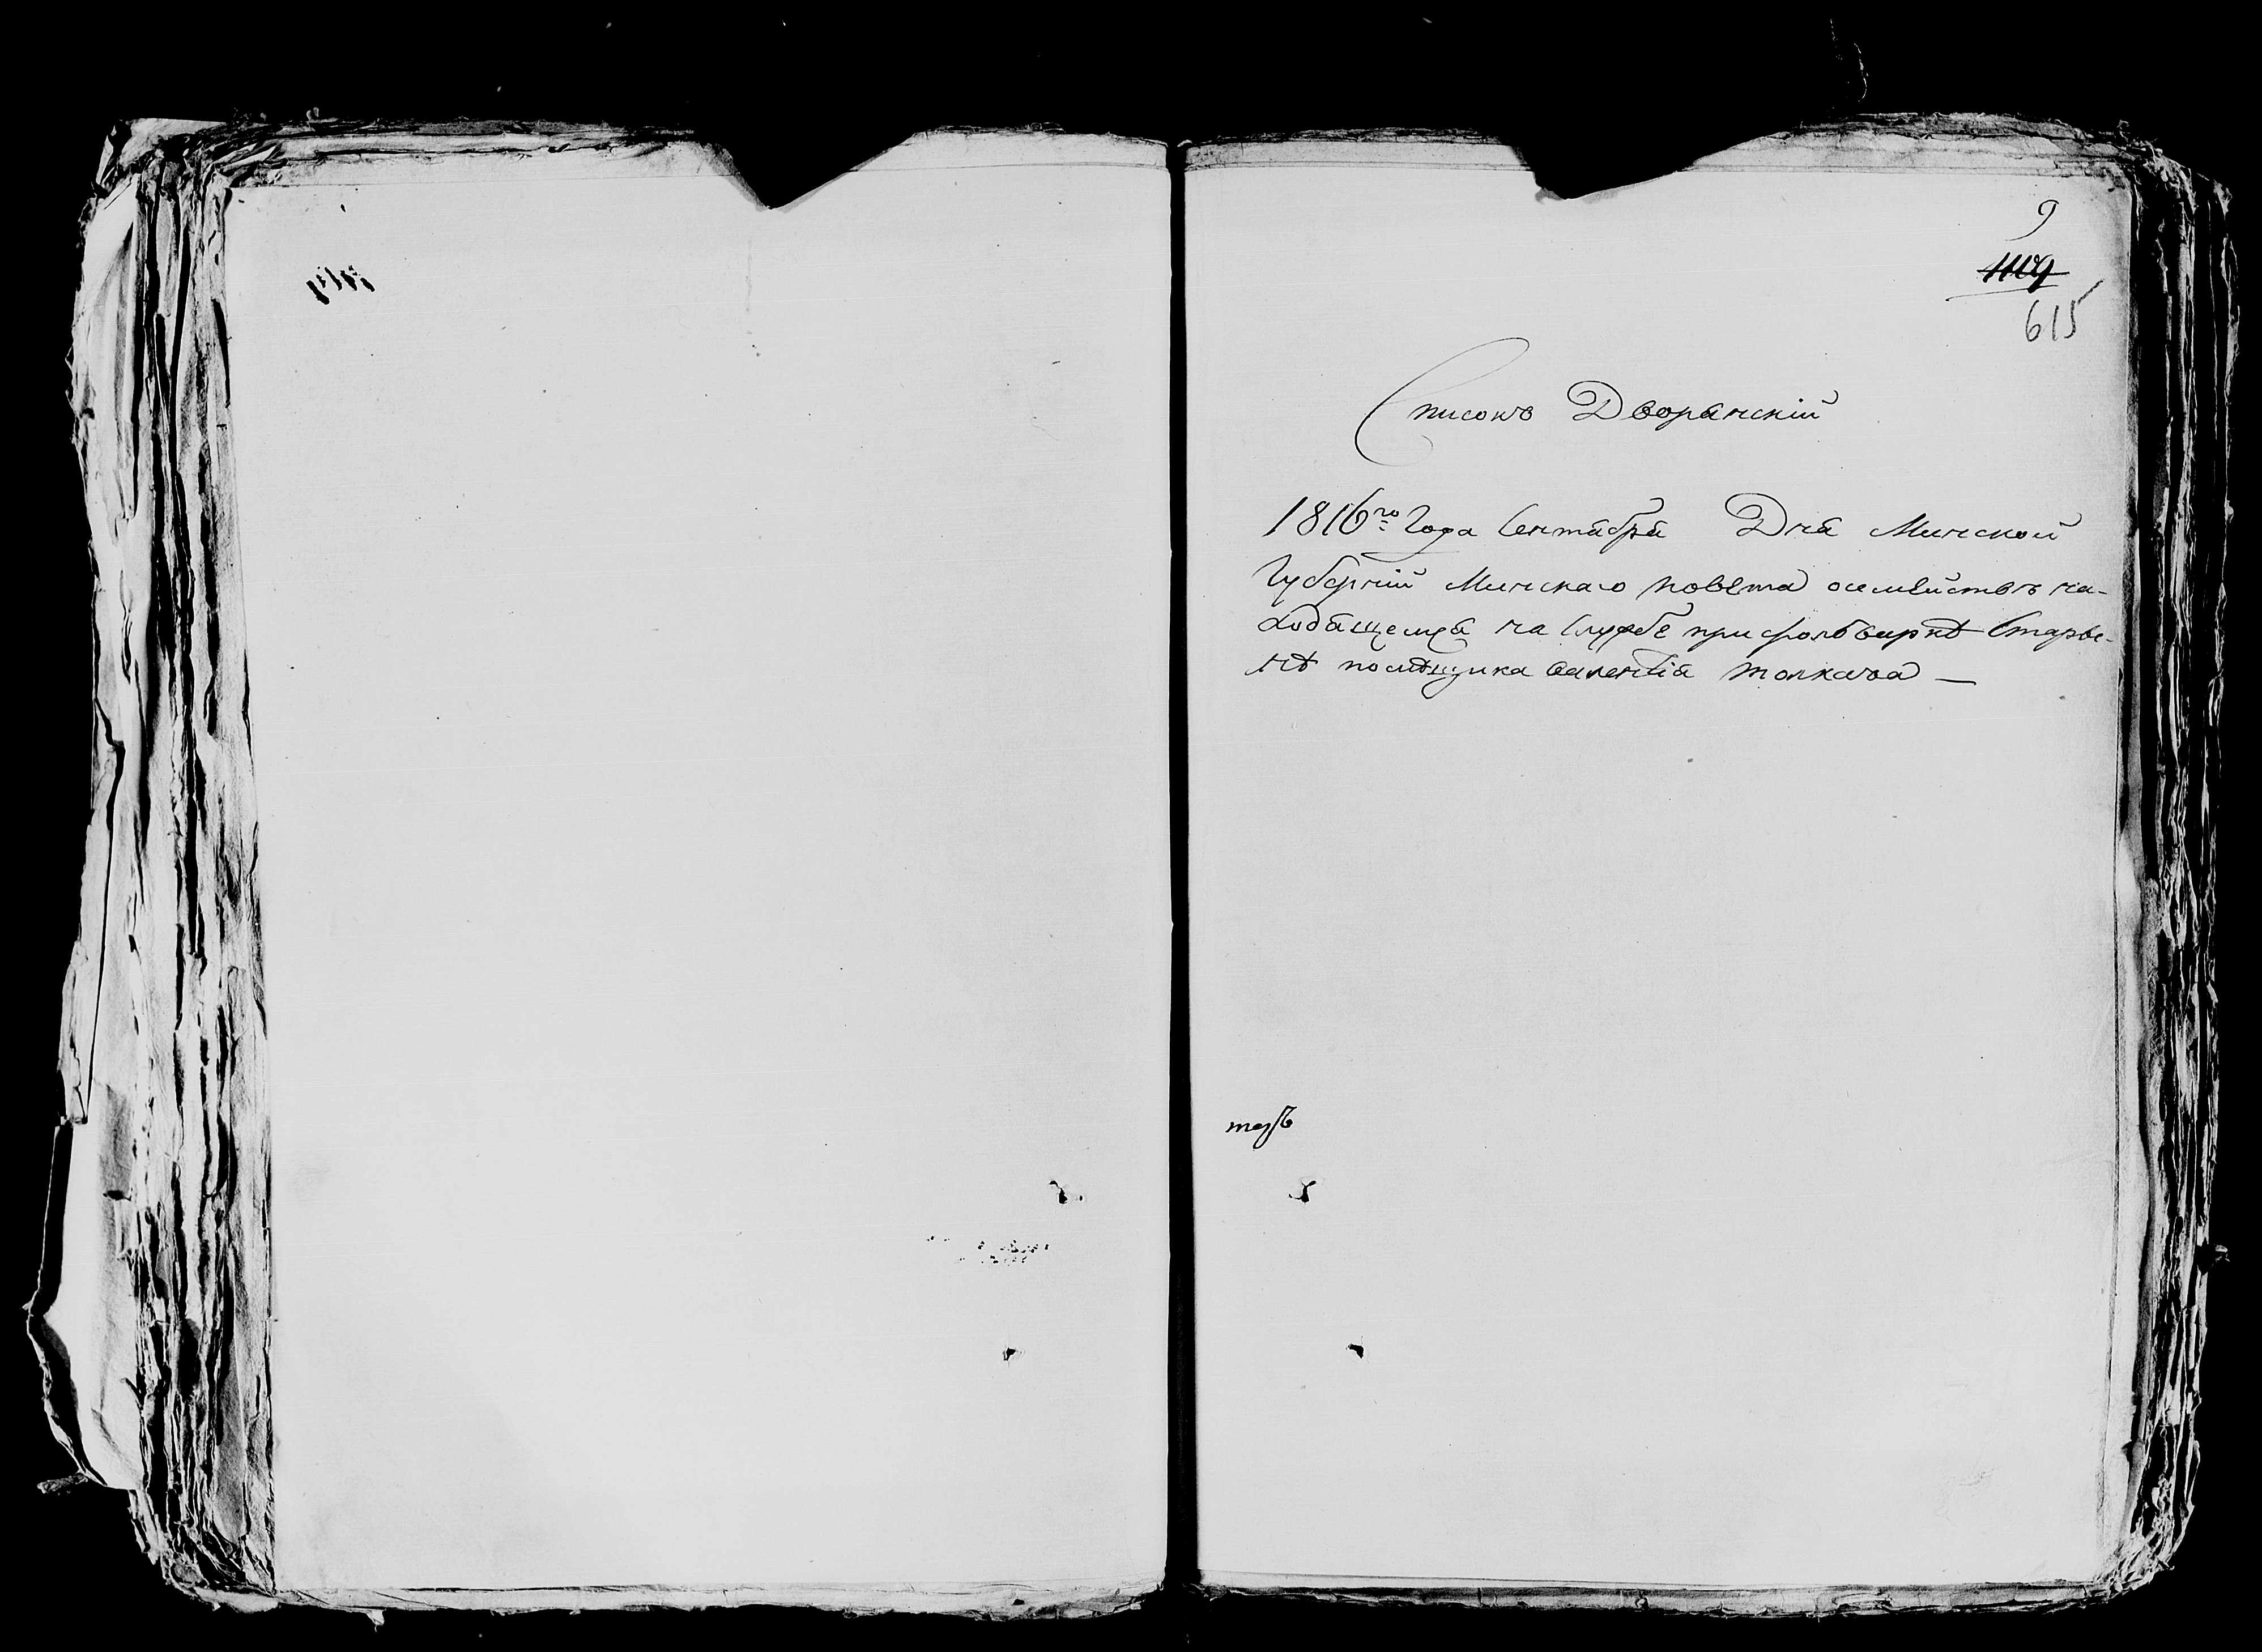 9
615
Списокъ Дворянскій
1816го Года Сентября Дня Минской
Губерніи Минскаго повѣта осемействѣ на-
ходящемся на Службѣ при фольваркѣ Стары-
нѣ помѣщика Валентія Толкача —